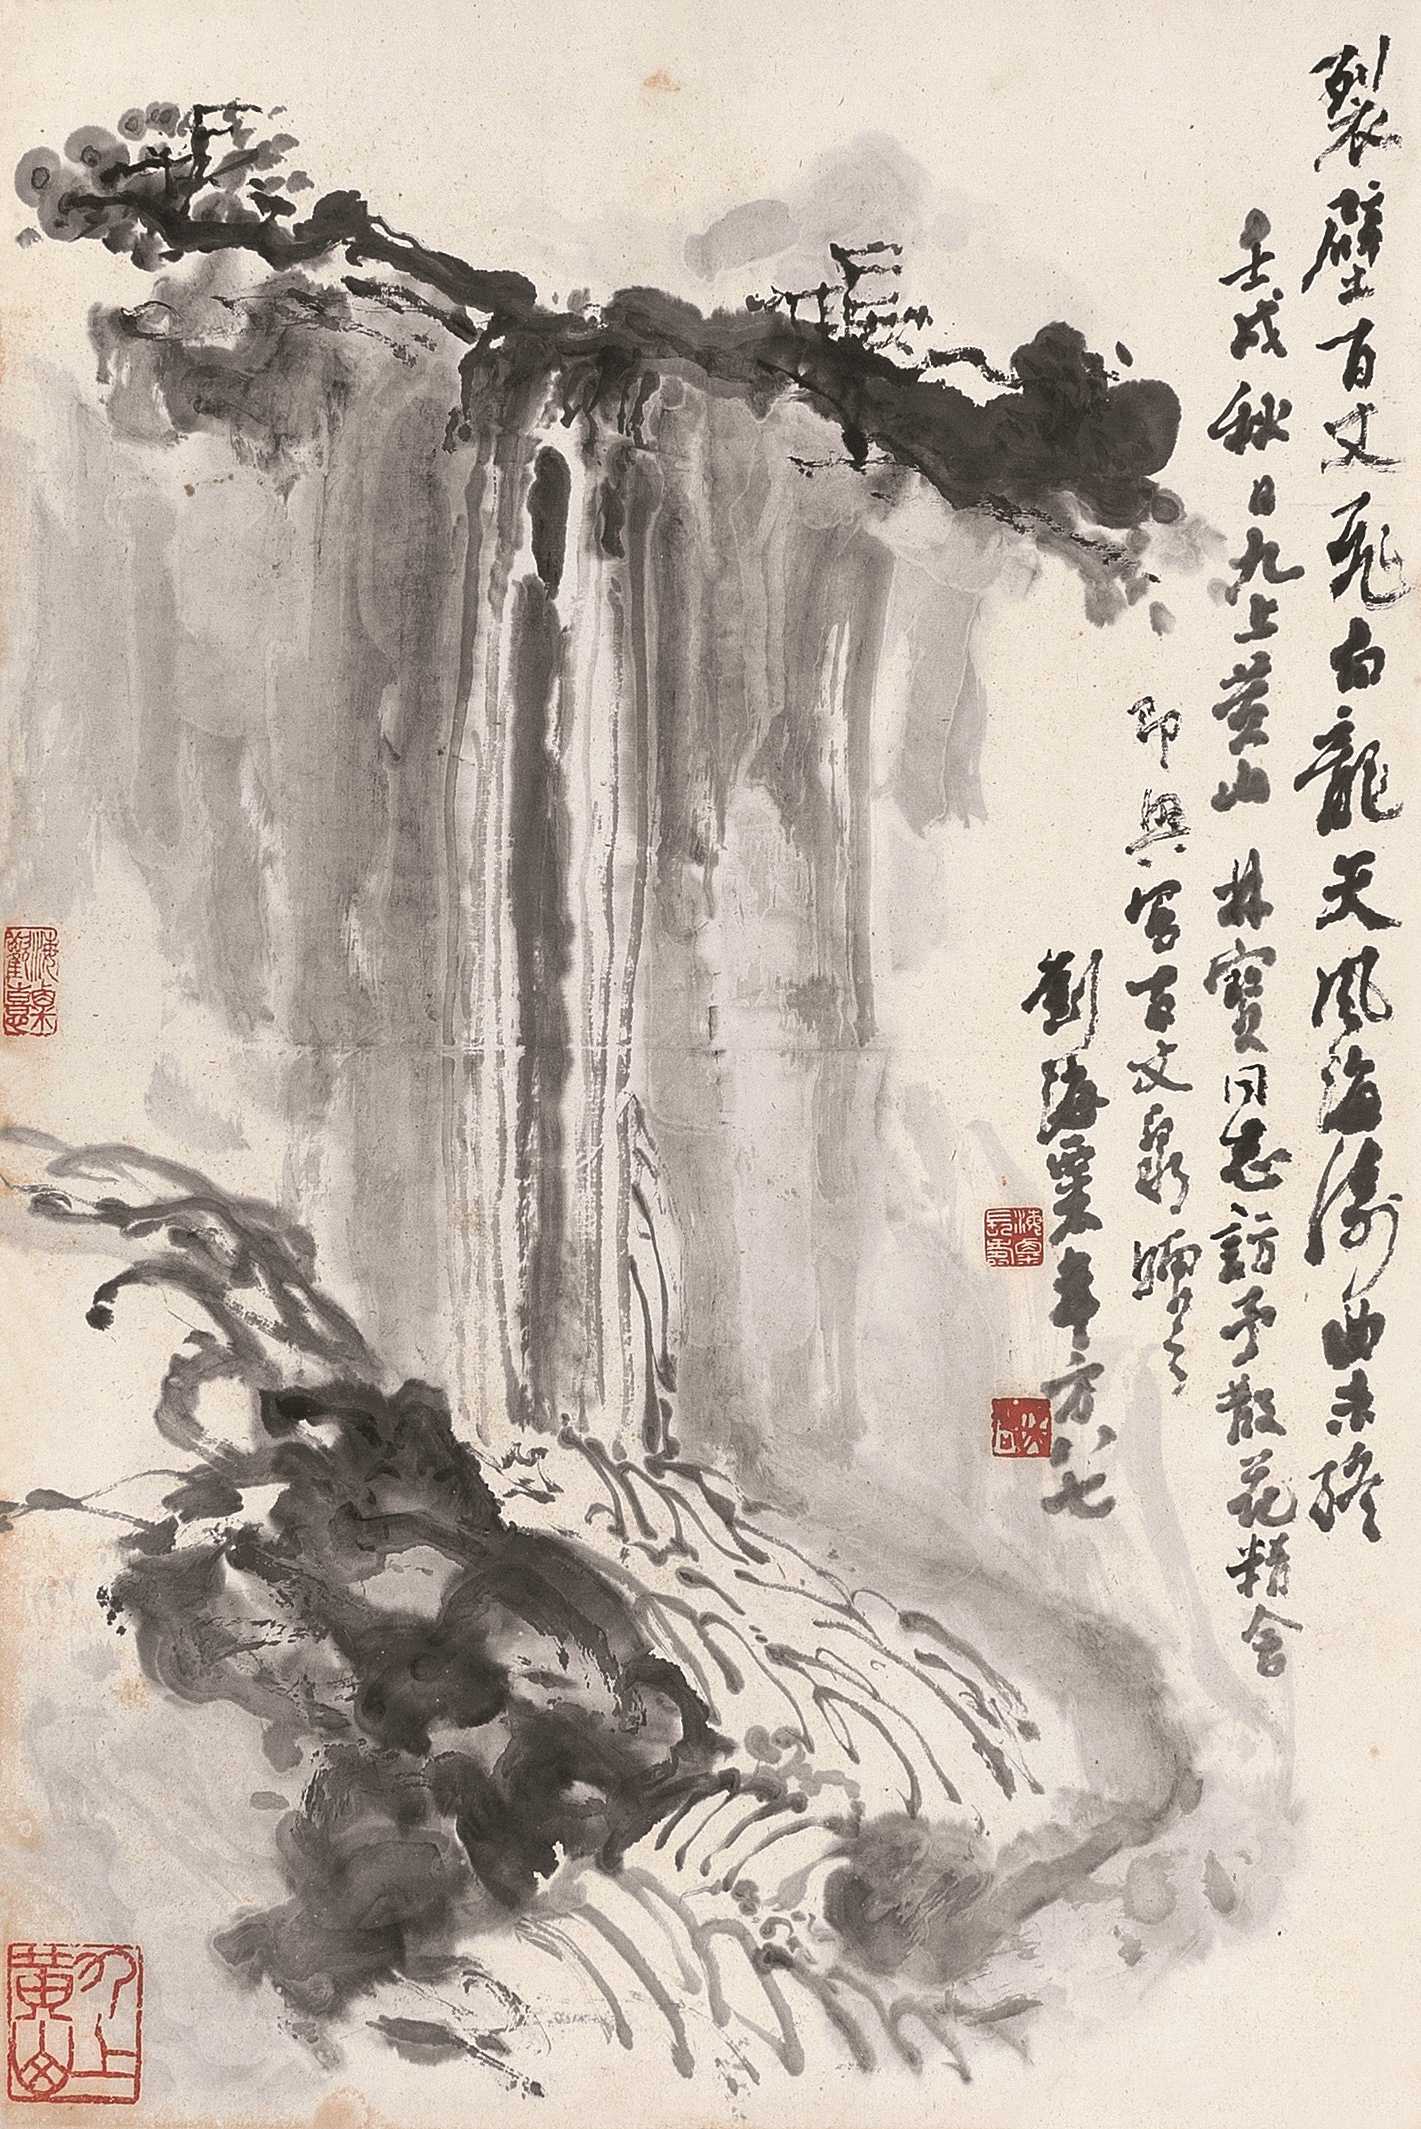 裂壁百丈飛白龍天風海濤曲未終
壬戌秋日九上黄山 林寶同志訪予散花精舍
即興寫百丈泉
劉海粟年方八七
九上
黄山